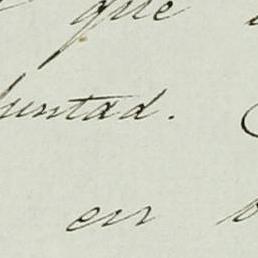 que
luntad.
en